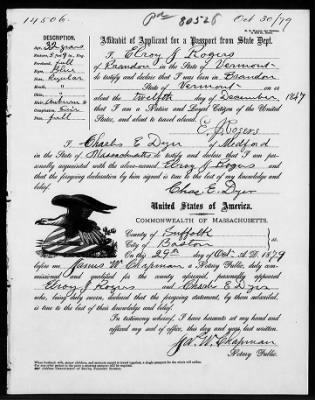 14506.
80526
Oct 30/79
DESCRIPTION.
Affidavit of Applicant for a Passport from State Dept.
Age, 32 years
I, Elroy J Rogers
of Brandon in the State of Vermont
to testify and declare that I was born in Brandon
State of Vermont on or
about the twelfth day of December, 1847
that I am a Native and Loyal Citizen of the United
States, and about to travel abroad.
E. J. Rogers
I Charles E Dyer of Medford
in the State of Massachusetts to testify and declare that I am per-
sonally acquainted with the above-named Elroy J Rogers and
that the foregoing declaration by him signed is true to the best of my knowledge and
belief.
Chas E. Dyer
United States of America.
COMMONWEALTH OF MASSACHUSETTS.
County of Suffolk
City of Boston
On this 29th day of Oct. A.D. 1879
before me W. Chapman a Notary Public, duly com-
missioned and qualified for the above, personally appeared
Elroy J Rogers and Charles E Dyer
who, being duly sworn, declared that the foregoing statement, by them subscribed,
is true to the best of their knowledge and belief.
In testimony whereof, I have hereunto set my hand and
affixed my seal of office, this day and year last written.
W. Chapman
Notary Public.